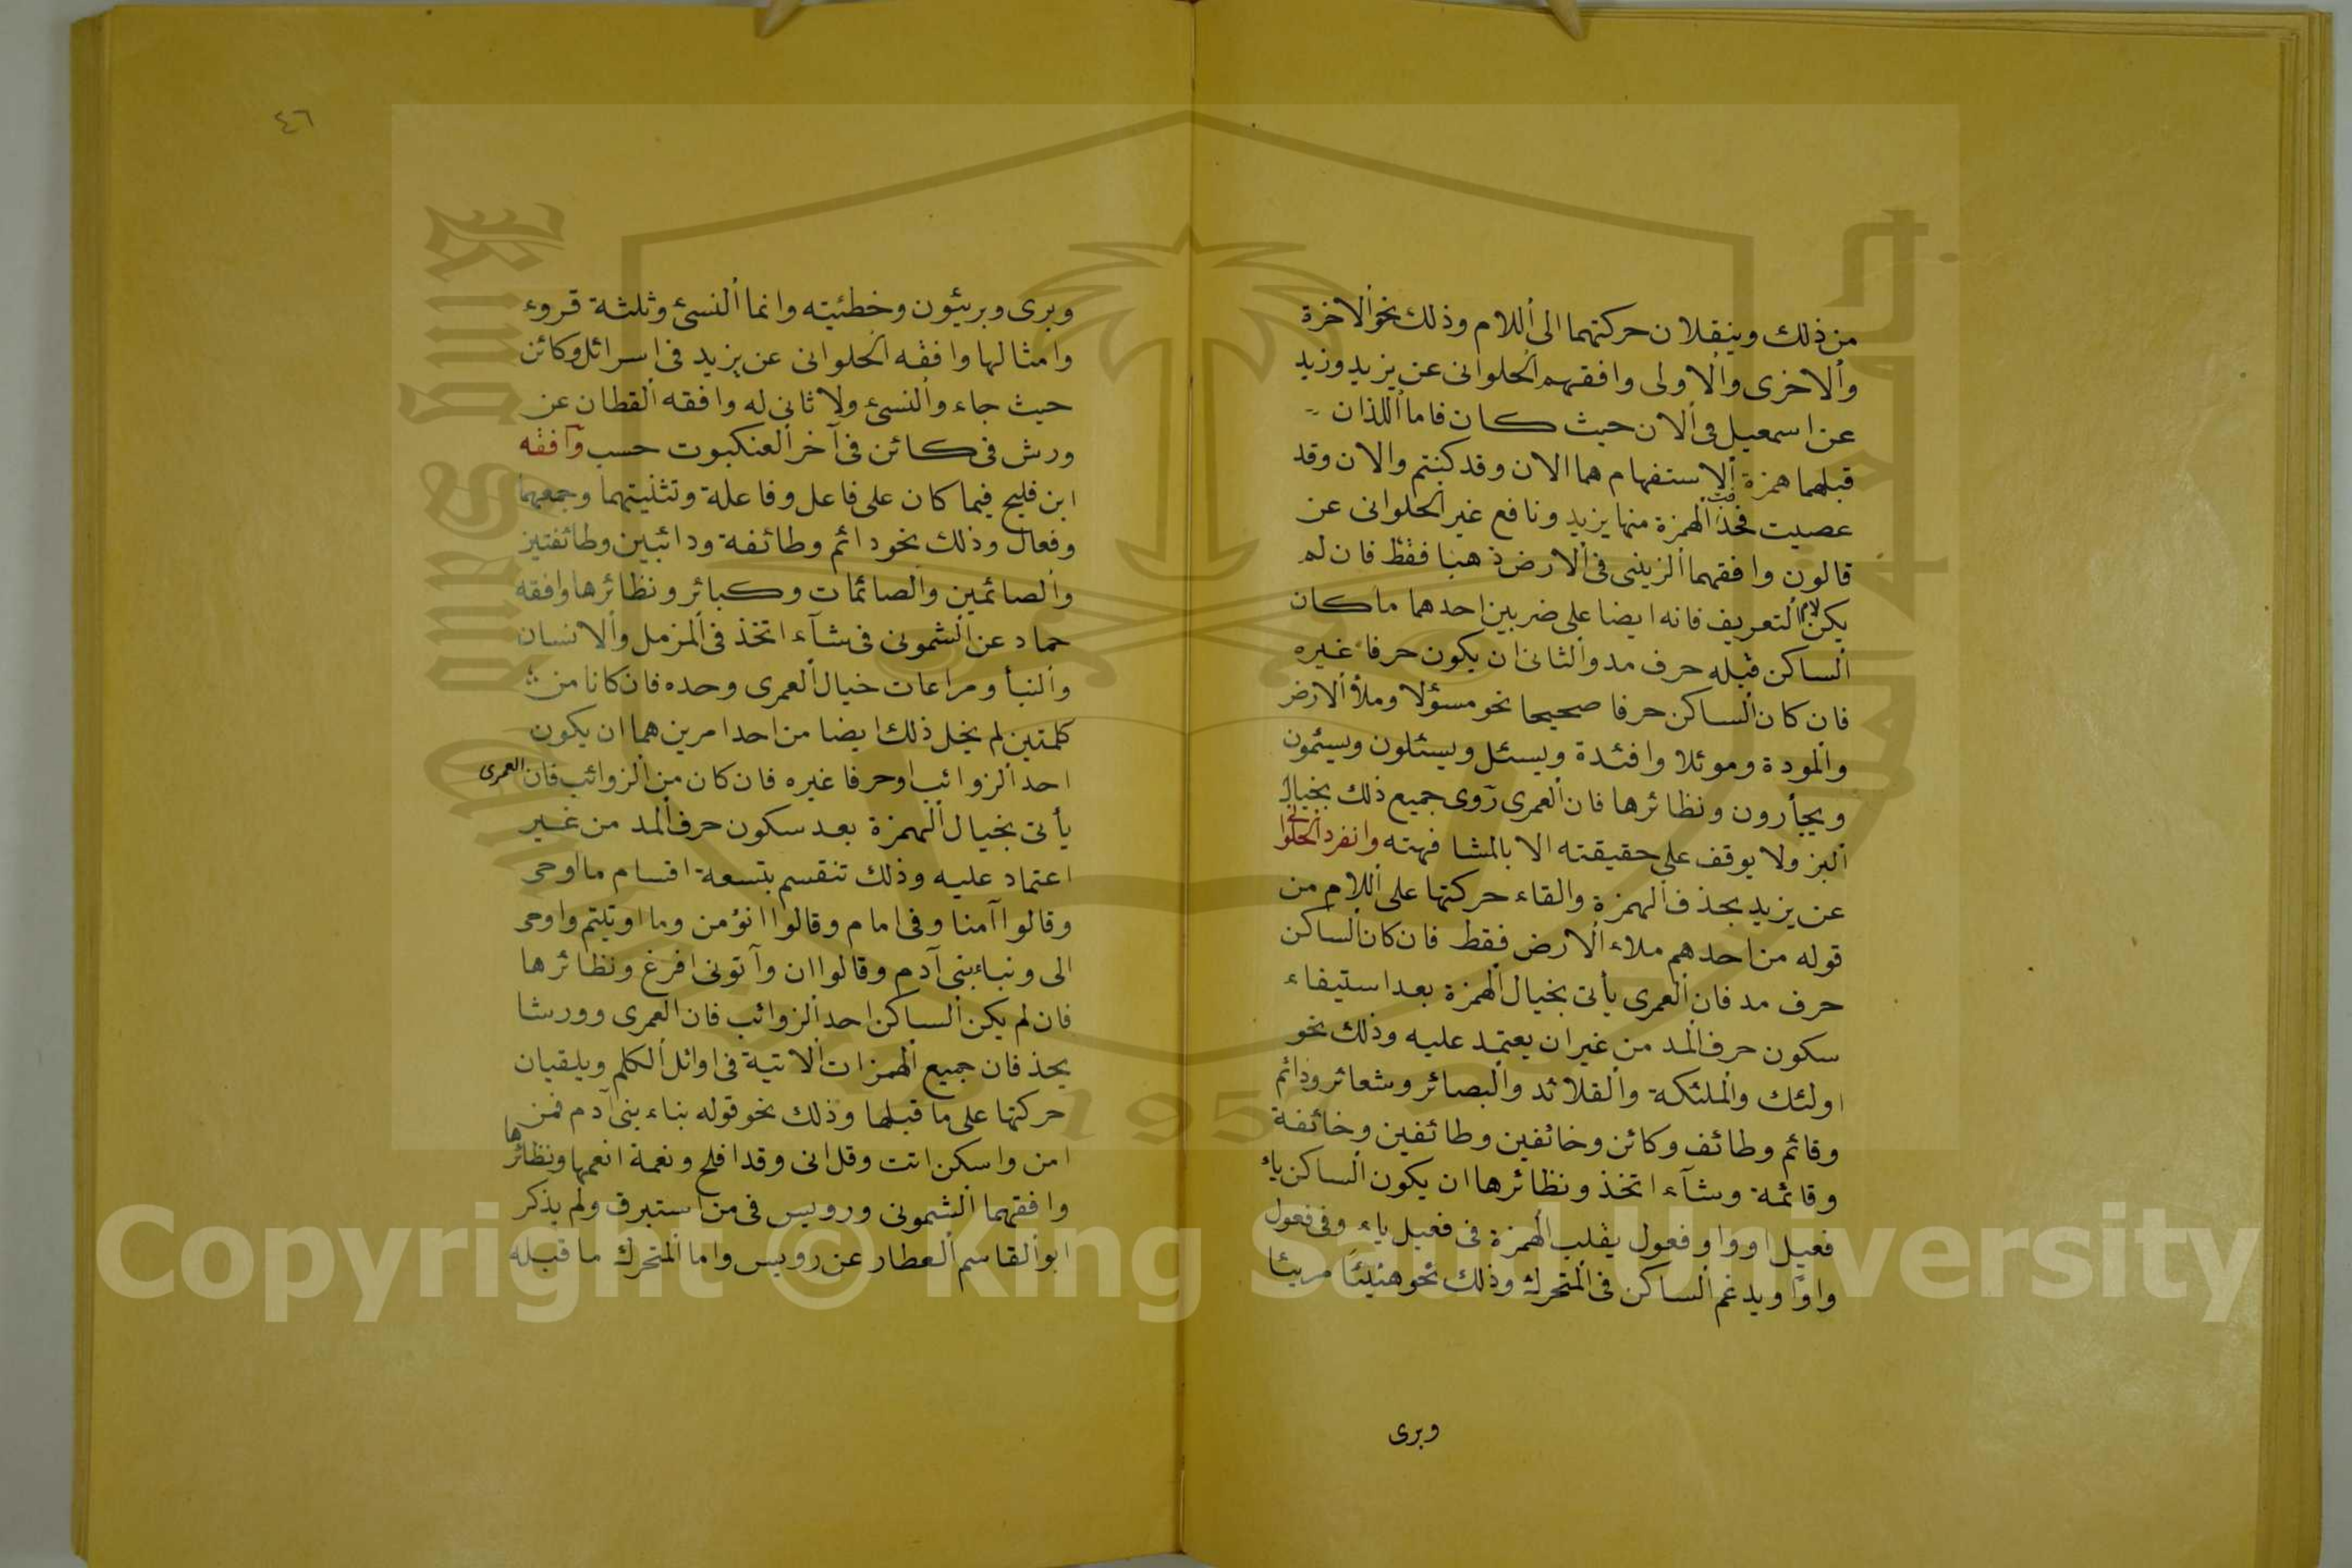 من ذلك وينقلان حركتهما الى اللام وذلك نحو الاخرة
والاخرى والاولى وافقهم الحلوانى عن يزيد وزيد
عن اسمعيل فى الان حيث كان فاما اللذان
قبلهما همزة الاستفهام هما الان وقد كنتم والان وقد
عصيت فحذفت الهمزة منها يزيد ونافع غير الحلوانى عن
قالون وافقهما الزينبى فى الارض ذهبا فقط فان لم
يكن لام التعريف فانه ايضا على ضربين احدهما ما كان
الساكن قبله حرف مد والثانى ان يكون حرفا غيره
فان كان الساكن حرفا صحيحا نحو مسؤلا وملأ الارض
والمودة وموئلا وافئدة ويسئل ويسئلون ويسئمون
ويجأرون ونظائرها فان العمرى روى جميع ذلك بخيال
البز ولا يوقف على حقيقته الا بالمشافهته وانفرد الحلوانى
عن يزيد بحذف الهمزة والقاء حركتها على اللام من
قوله من احدهم ملاء الارض فقط فان كان الساكن
حرف مد فان العمرى يأتى بخيال الهمزة بعد استيفاء
سكون حرف المد من غير ان يعتمد عليه وذلك نحو
اولئك والملئكة والقلائد والبصائر وشعائر ودائم
وقائم وطائف وكائن وخائفين وطائفين وخائفة
وقائمة وشآء اتخذ ونظائرها ان يكون الساكن ياء
فعيل او واو فعول يقلب الهمزة فى فعيل ياء وفى فعول
واوًا ويدغم الساكن فى المتحرك وذلك نحو هنيئًا مريئا
وبرى
٤٦
وبرى وبريئون وخطئيته وانما النسئ وثلثة قروء
وامثالها وافقه الحلوانى عن يزيد فى اسرائل وكائن
حيث جاء والنسئ ولا ثانى له وافقه القطان عن
ورش فى كائن فى آخر العنكبوت حسب وافقه
ابن فليح فيما كان على فاعل وفاعلة وتثنيتهما وجمعهما
وفعال وذلك نحو دائم وطائفة ودائبين وطائفتين
والصائمين والصائمات وكبائر ونظائرها وافقه
حماد عن الشمونى فى شآء اتخذ فى المزمل والانسان
والنبأ ومراعات خيال العمرى وحده فان كانا من
كلمتين لم يخل ذلك ايضا من احد امرين هما ان يكون
احد الزوائب او حرفا غيره فان كان من الزوائب فان العمرى
يأتى بخيال الهمزة بعد سكون حرف المد من غير
اعتماد عليه وذلك تنقسم بتسعة اقسام ما اوحى
وقالوا آمنا وفى امام وقالوا انؤمن وما اوتيتم واوحى
الى ونباء بنى آدم وقالوا ان وآتونى افرغ ونظائرها
فان لم يكن الساكن احد الزوائب فان العمرى وورشا
يحذفان جميع الهمزات الاتية فى اوائل الكلم ويلقيان
حركتها على ما قبلها وذلك نحو قوله بناء بنى آدم فمن
امن واسكن انت وقل انى وقد افلح ونعمة انعمها ونظائرها
وافقهما الشمونى ورويس فى من استبرق ولم يذكر
ابو القاسم العطار عن رويس واما المتحرك ما قبله
Copyright © King Saud University
1957